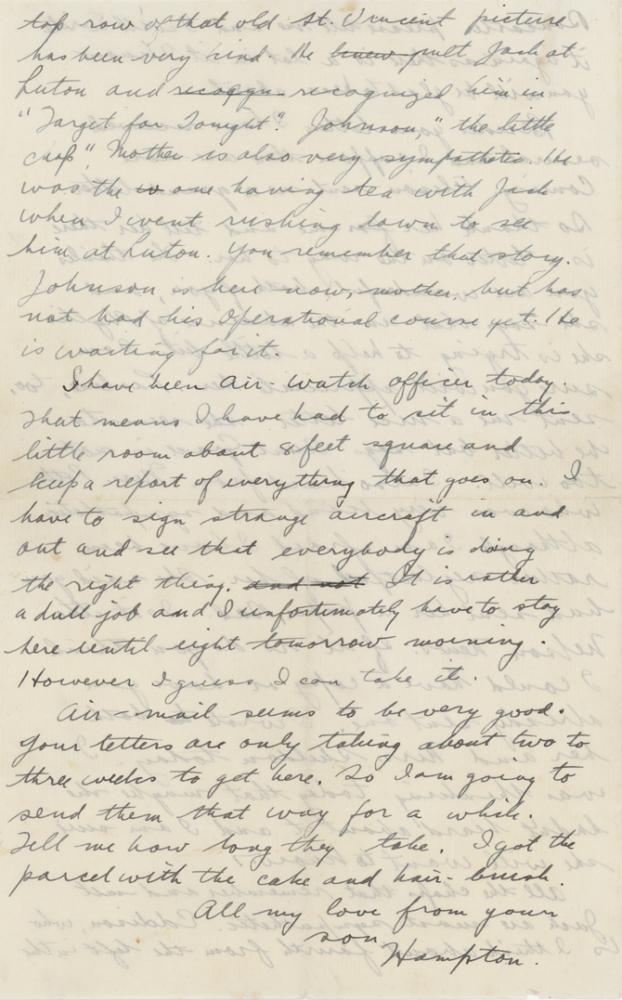 top row of that old St. Vincent picture
has been very kind. He knew met Jack at
Luton and recogn recognized him in
"Target for Tonight". Johnson, "the little
chap", Mother is also very sympathetic. He
was the w one having tea with Jack
when I went rushing down to see
him at Luton. You remember that story.
Johnson is here now, mother, but has
not had his Operational course yet. He
is waiting for it.
I have been air-watch officer today.
That means I have had to sit in this
little room about 8 feet square and
keep a report of everything that goes on. I
have to sign strange aircraft in and
out and see that everybody is doing
the right thing. and not It is rather
a dull job and I unfortunately have to stay
here until eight tomorrow morning.
However I guess I can take it.
Air-mail seems to be very good.
Your letters are only taking about two to
three weeks to get here. So I am going to
send them that way for a while.
Tell me how long they take. I got the
parcel with the cake and hair-brush.
All my love from your
son
Hampton.